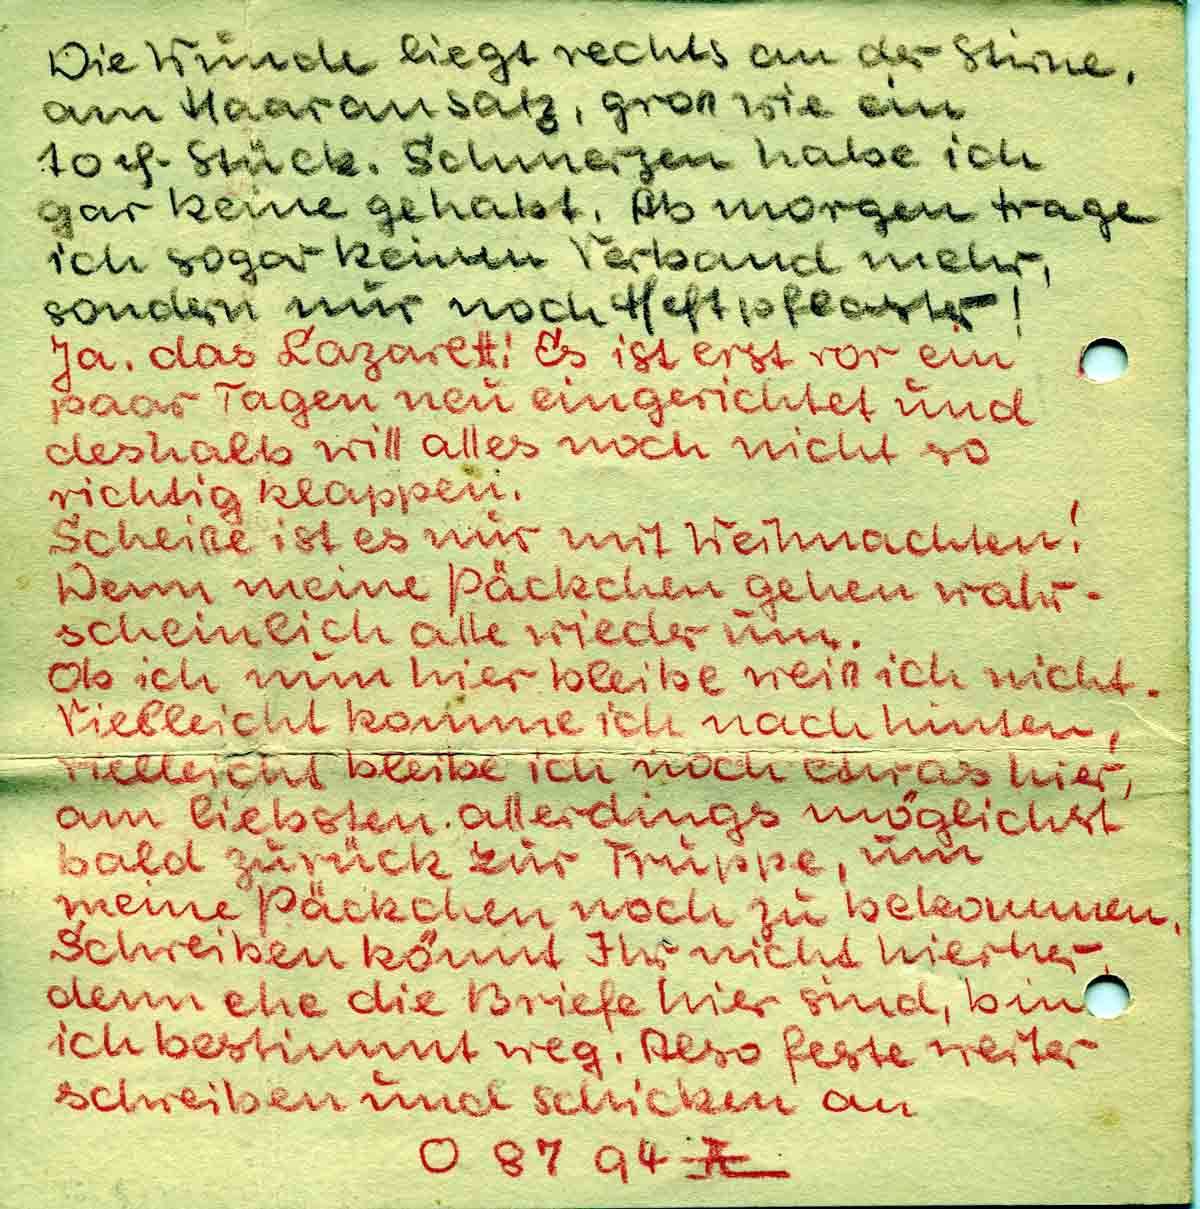 Die Wunde liegt rechts an der Stirne,
am Haaransatz, groß wie ein
10 ₰-Stück. Schmerzen habe ich
gar keine gehabt. Ab morgen trage
ich sogar keinen Verband mehr,
sondern nur noch Heftpflaster!
Ja, das Lazarett! Es ist erst vor ein
paar Tagen neu eingerichtet und
deshalb will alles noch nicht so
richtig klappen.
Scheiße ist es nur mit Weihnachten!
Denn meine Päckchen gehen wahr-
scheinlich alle wieder um.
Ob ich nun hier bleibe weiß ich nicht.
Vielleicht komme ich nach hinten,
vielleicht bleibe ich noch etwas hier,
am liebsten allerdings möglichst
bald zurück zur Truppe, um
meine Päckchen noch zu bekommen.
Schreiben könnt Ihr nicht hierher,
denn ehe die Briefe hier sind, bin
ich bestimmt weg. Also feste weiter
schreiben und schicken an
O 87 94